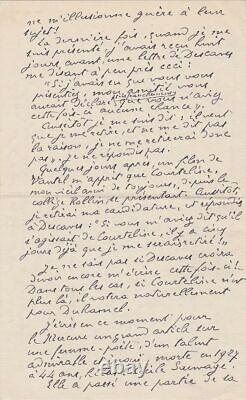 ne m'illusionne guère à leur
sujet !
La dernière fois, quand je me
suis présenté, j'avais reçu huit
jours avant, une lettre de Descaves
me disant à peu près ceci :
"Si j'avais su que vous vous
présentiez,
aucune chance".
Aussitôt je me suis dit : "Il veut
que je me retire, et ne me dit pas
la raison, je ne me retirerai donc
pas". Je ne répondis pas.
jours après, un
m'apprit que Courteline,
mon vieil ami de toujours, depuis le
collège Rollin, se présentait. Aussitôt,
je retirai ma candidature, et répondis
à Descaves : "Si vous m'aviez dit qu'il
s'agissait de Courteline, il y a cinq
jours déjà que je me serais retiré !"
Je ne sais pas si Descaves croira
devoir encore m'écrire cette fois-ci.
Dans tous les cas, si Courteline n'est
plus là, il votera naturellement
pour Duhamel.
J'écris en ce moment pour
le Mercure un grand article sur
une femme-poète, d'un talent
admirable et inouï, morte en 19
à 44 ans, le Sauvage.
Elle a passé une partie de sa